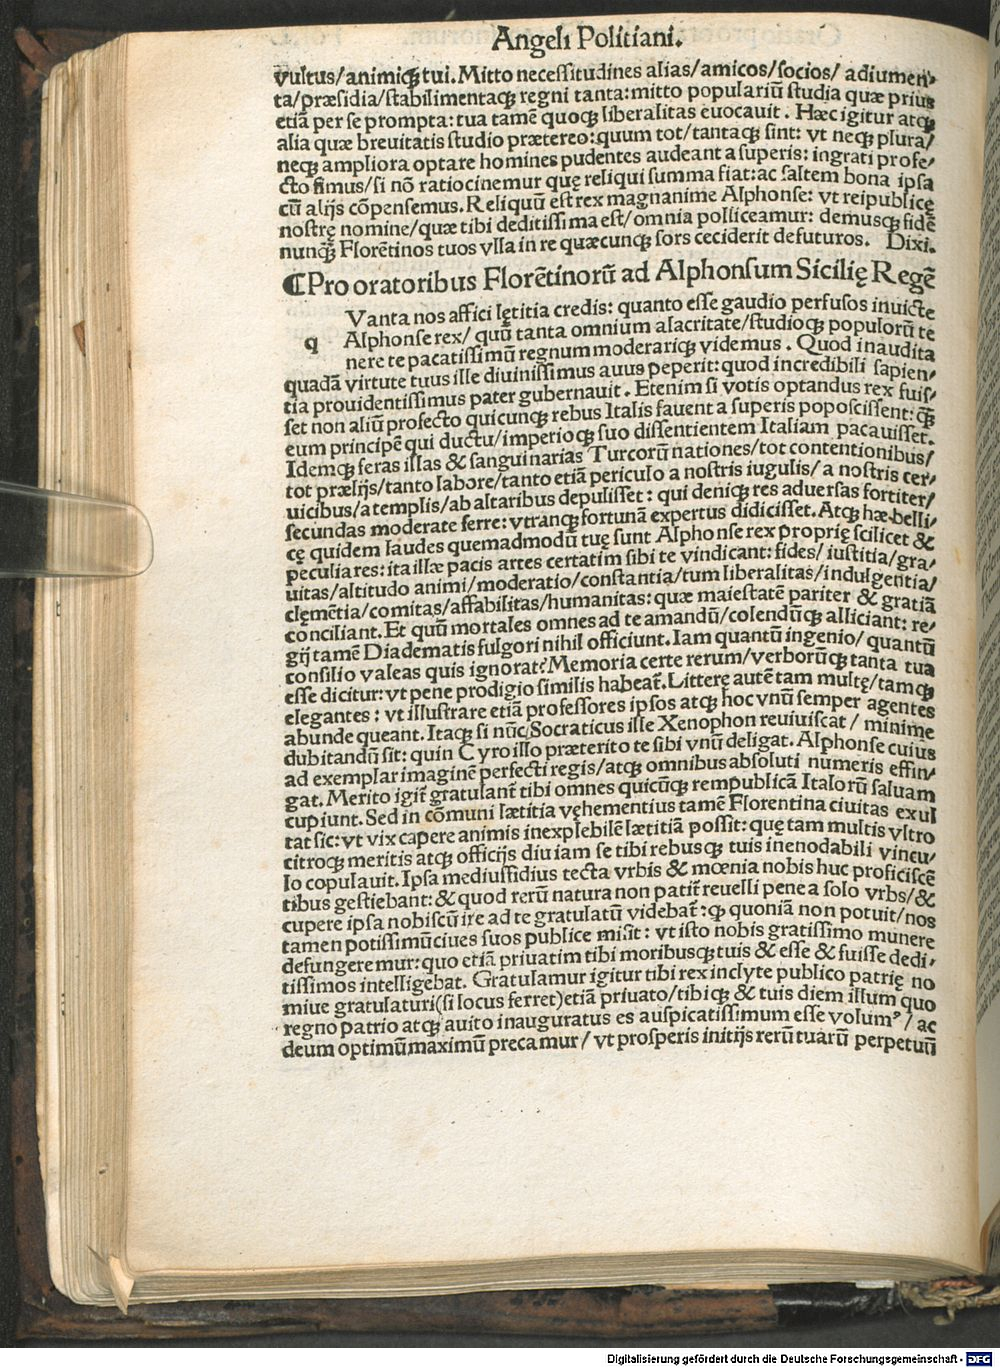 Angeli Politiani.
vultus/animiqꝫ tui. Mitto necessitudines alias/amicos/socios/ adiumen⸗
ta/præsidia/stabilimentaqꝫ regni tanta: mitto populariū studia quæ prius
etiā per se prompta: tua tamē quoqꝫ liberalitas euocauit. Hæc igitur atqꝫ
alia quæ breuitatis studio prætereo: quum tot/tantaqꝫ sint: vt neqꝫ plura/
neqꝫ ampliora optare homines pudentes audeant a superis: ingrati profe⸗
cto simus/si nō ratiocinemur quę reliqui summa fiat: ac saltem bona ipsa
cū alijs cōpensemus. Reliquū est rex magnanime Alphonse: vt reipublicę
nostrę nomine/quæ tibi deditissima est/omnia polliceamur: demusqꝫ fidē
nunqꝫ̄ Florētinos tuos vlla in re quæcunqꝫ sors ceciderit defuturos. Dixi.
¶Pro oratoribus Florētinorū ad Alphonsum Sicilię Regē
Vanta nos affici lętitia credis: quanto esse gaudio perfusos inuicte
q Alphonse rex/ quū tanta omnium alacritate/studioqꝫ populorū te
nere te pacatissimū regnum moderariqꝫ videmus. Quod inaudita
quadā virtute tuus ille diuinissimus auus peperit: quod incredibili sapien⸗
tia prouidentissimus pater gubernauit. Etenim si votis optandus rex fuis⸗
set non aliū profecto quicunqꝫ rebus Italis fauent a superis poposcissent: qꝫ̄
eum principē qui ductu/imperioqꝫ suo dissentientem Italiam pacauisset.
Idemqꝫ feras illas & sanguinarias Turcorū nationes/tot contentionibus/
tot prælijs/tanto labore/tanto etiā periculo a nostris iugulis/a nostris cer⸗
uicibus/a templis/ab altaribus depulisset: qui deniqꝫ res aduersas fortiter/
secundas moderate ferre: vtranqꝫ fortunā expertus didicisset. Atqꝫ hæ belli⸗
cę quidem laudes quemadmodū tuę sunt Alphonse rex proprię scilicet &
peculiares: ita illæ pacis artes certatim sibi te vindicant: fides/ iustitia/gra⸗
uitas/altitudo animi/moderatio/constantia/tum liberalitas/indulgentia/
clęmētia/comitas/affabilitas/humanitas: quæ maiestatē pariter & gratiā
conciliant. Et quū mortales omnes ad te amandū/colendūqꝫ alliciant: re⸗
gij tamē Diadematis fulgori nihil officiunt. Iam quantū ingenio/ quantū
consilio valeas quis ignorat? Memoria certe rerum/verborūqꝫ tanta tua
esse dicitur: vt pene prodigio similis habeat̄. Litterę autē tam multę/tamqꝫ
elegantes: vt illustrare etiā professores ipsos atqꝫ hoc vnū semper agentes
abunde queant. Itaqꝫ si nūc Socraticus ille Xenophon reuiuiscat/ minime
dubitandū sit: quin Cyro illo præterito te sibi vnū deligat. Alphonse cuius
ad exemplar imaginē perfecti regis/atqꝫ omnibus absoluti numeris effin⸗
gat. Merito igit̄ gratulant̄ tibi omnes quicūqꝫ rempublicā Italorū saluam
cupiunt. Sed in cōmuni lætitia vęhementius tamē Florentina ciuitas exul
tat sic: vt vix capere animis inexplebilē lætitiā possit: quę tam multis vltro
citroqꝫ meritis atqꝫ officijs diu iam se tibi rebusqꝫ tuis inenodabili vincu⸗
lo copulauit. Ipsa mediussidius tecta vrbis & mœnia nobis huc proficiscē
tibus gestiebant: & quod rerū natura non patit̄ reuelli pene a solo vrbs/&
cupere ipsa nobiscū ire ad te gratulatū videbat̄: qꝫ quoniā non potuit/nos
tamen potissimū ciues suos publice misit: vt isto nobis gratissimo munere
defungeremur: quo etiā priuatim tibi moribusqꝫ tuis & esse & fuisse dedi⸗
tissimos intelligebat. Gratulamur igitur tibi rex inclyte publico patrię no
miue gratulaturi(si locus ferret)etiā priuato/tibiqꝫ & tuis diem illum quo
regno patrio atqꝫ auito inauguratus es auspicatissimum esse volumꝰ/ ac
deum optimū maximū precamur/ vt prosperis initijs rerū tuarū perpetuū
Digitalisierung gefördert durch die Deutsche Forschungsgemeinschaft - DFG